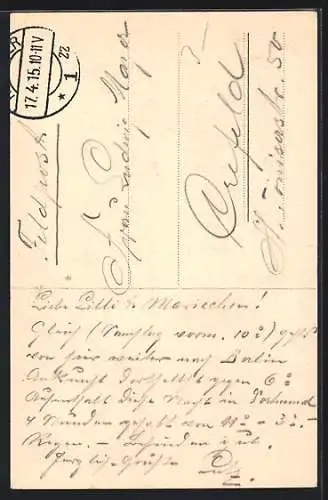 17.4.15.10-11V
* 1 22
Feldpost
Frau Ludwig Mayer
Crefeld
50
Liebe Lilli & Mariechen!
Gleich (Samstag vorm. 10°) geht's
von hier weiter nach Berlin
Ankunft dortselbst gegen 6°
Aufenthalt diese Nacht in Dortmund
4 Stunden gehabt von 11° - 3°.-
Regen. - Befinden gut.
Herzliche Grüße